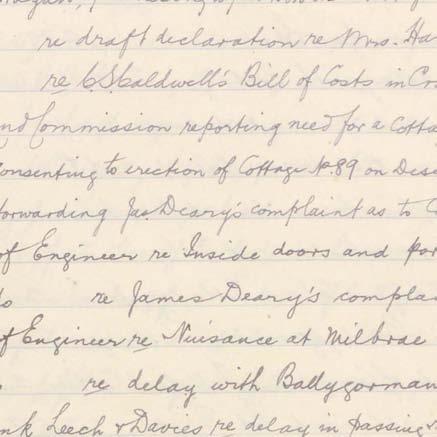 re draft declaration re Mrs. Ha
re C. S. Caldwell's Bill of Costs in Cr
nd Commission reporting need for a Cotta
onsenting to erection of Cottage No. 89 on Des
orwarding Jas. Deary's complaint as to C
of Engineer re Inside doors and por
o re James Deary's complai
f Engineer re Nuisance at Milbrae
re delay with Ballygorman
nk Leech & Davies re delay in passing